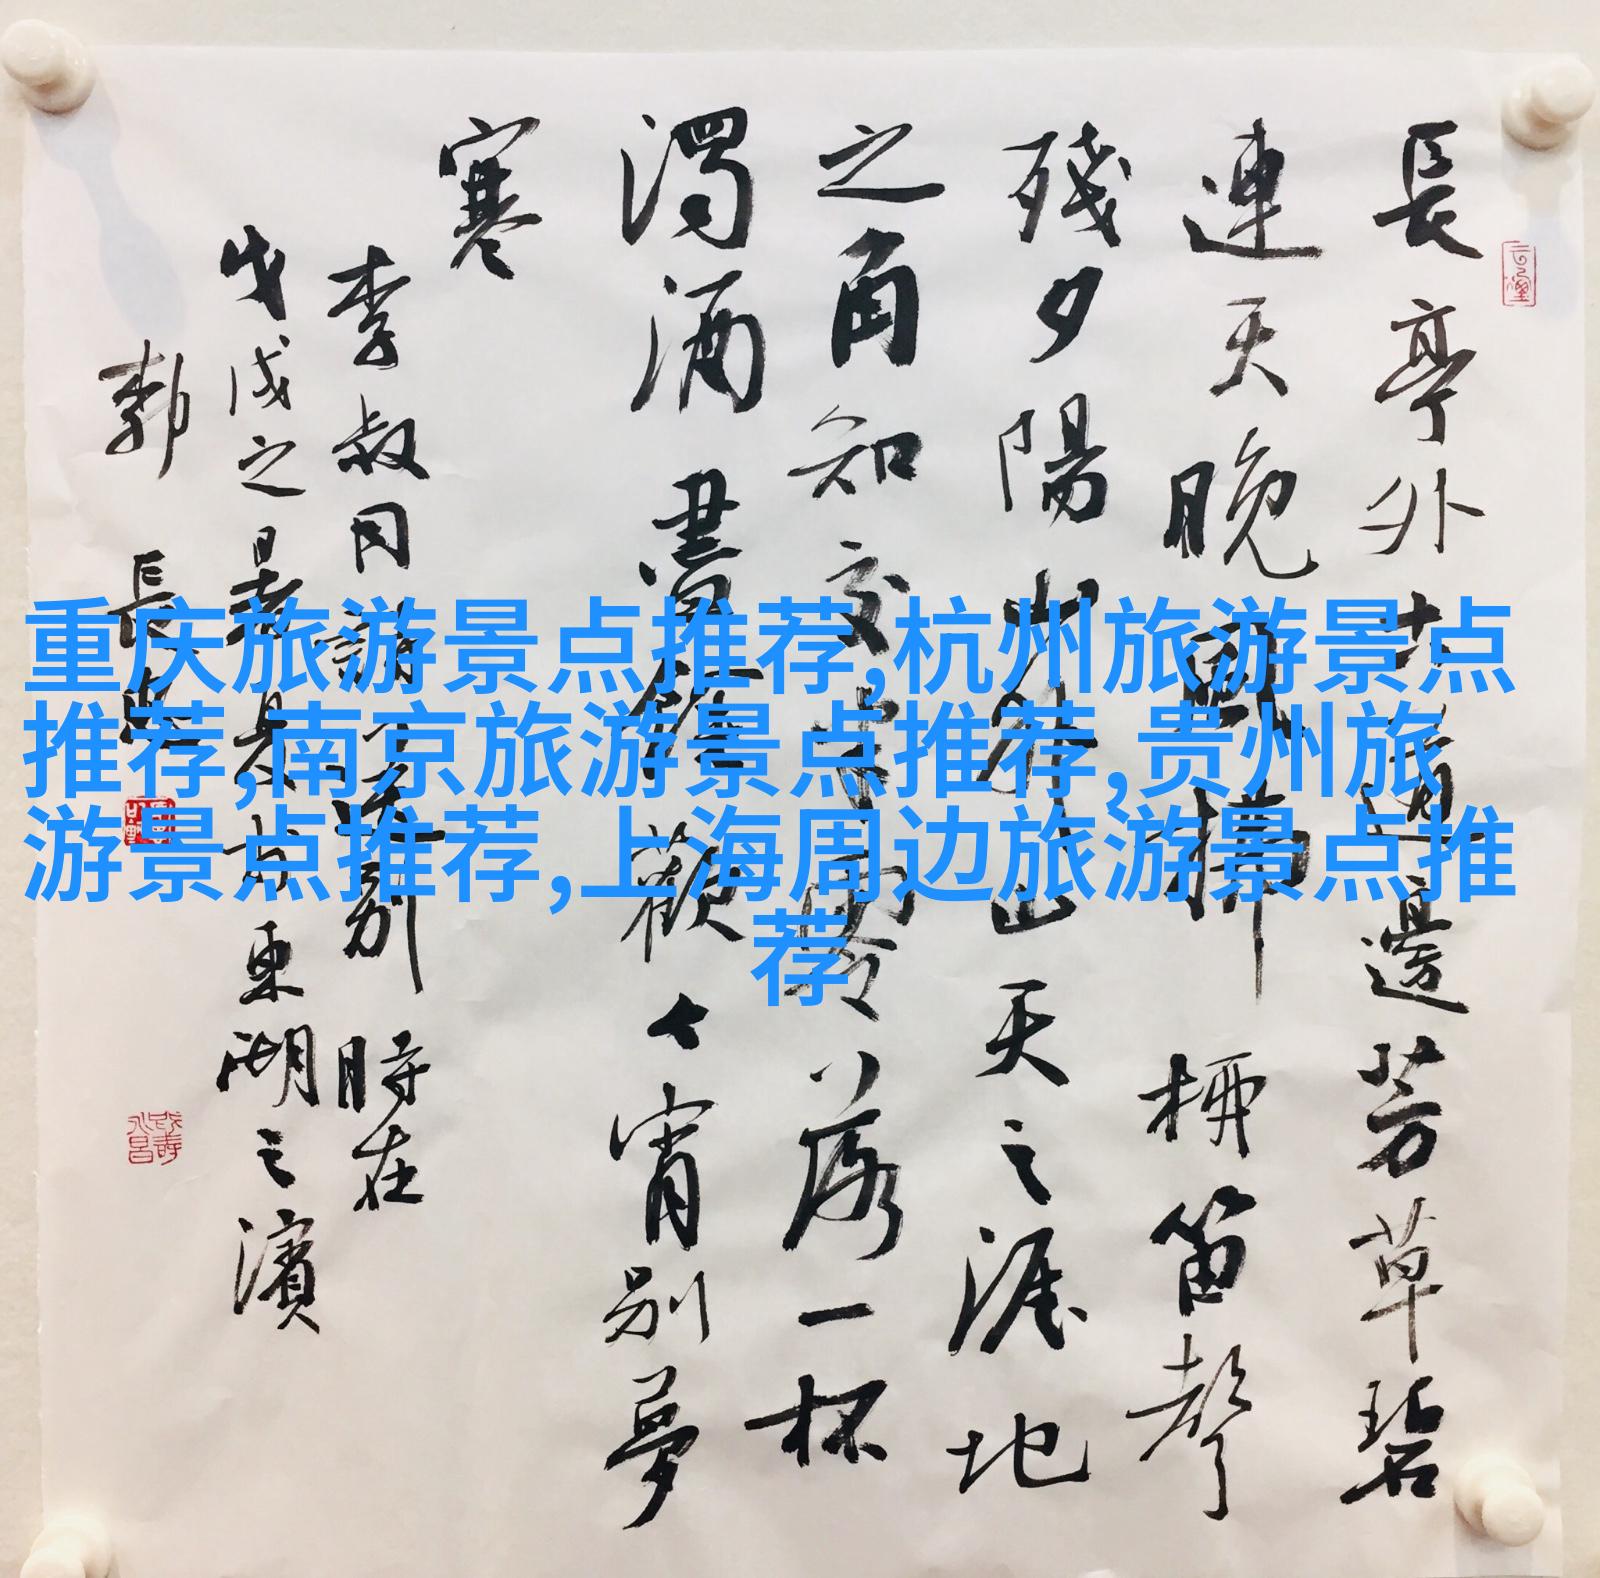 長亭外古道邊芳草碧
連天晚風拂柳笛聲
殘夕陽山外山天之涯地
之角知交半零落一杯
濁酒盡餘歡今宵別夢
寒
李叔同詩送别時在
戊戌之暑月于東湖之濱
郭長
重庆旅游景点推荐,杭州旅游景点
推荐,南京旅游景点推荐,贵州旅
游景点推荐,上海周边旅游景点推
荐